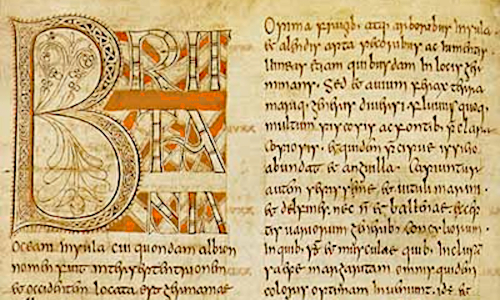 BRIT
TA
NIA
Oceani insula cui quondam albion
nomen fuit inter septentrionem
et occidentem locata est germaniae
Opima frugib. atq. arboribus insula.
et alendis apta pecoribus ac iumentis
uineas etiam quibusdam in locis ger
minans. Sed et auium ferax terra
mariq. generis diuersi. fluuiis quoq.
multum piscosis ac fontib. p̄clara
copiosis. et quidem p̄cipue issicio
abundat et anguilla. Capiuntur
autem saepissime et uituli marini
et delfines nec n̄ et ballenae excep
tis uariorum generib. concyliorum
In quib. s̄ et musculae quib. Inclusam
saepe margaritam omnis quidem
coloris optimam inueniunt. id ē